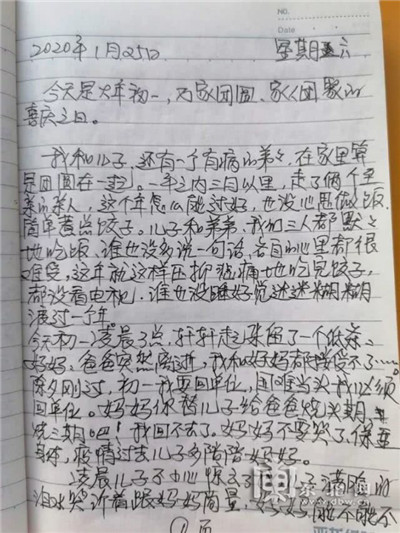 NO.
Date
2020年1月25日 星期六
今天是大年初一，万家团圆、家人团聚的
喜庆之日。
我和儿子，还有一个有病的弟弟，在家里算
是团圆在一起。一年之内三月以里，走了俩个至
亲的亲人，这个年怎么能过好，也没心思做饭，
简单煮点饺子。儿子和弟弟，我们三人都默默
地吃饭，谁也没多说一句话，各自的心里都很
难受，这年就这样压抑悲痛地吃完饺子，
都没看电视，谁也没睡好觉迷迷糊糊
渡过一个年。
今天初一凌晨3点，轩轩走了床留了一个纸条
妈妈，爸爸突然离逝，我和妈妈都接受不了……
除夕刚过，初一我要回单位，国难当头我必须
回单位。妈妈你替儿子给爸爸烧头期
烧三期吧！我回不去了。妈妈不要哭了，保重
身体，疫情过去儿子多陪陪妈妈。
凌晨儿子不小心惊了 满脸的
泪水哭诉着跟妈妈商量，妈妈能不能不
东北网